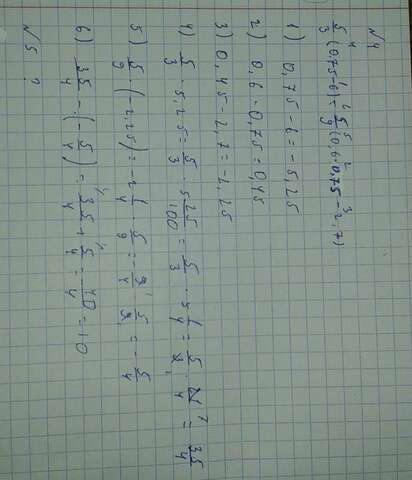 №4
5/3 (0,75-6) - 5/9 (0,6·0,75-2,7)
1) 0,75-6=-5,25
2) 0,6·0,75=0,45
3) 0,45-2,7=-2,25
4) 5/3 · 5,25 = 5/3 · 5 25/100 = 5/3 · 5 1/4 = 5/3 · 21/4 = 35/4
5) 5/9 · (-2,25) = -2 1/4 · 5/9 = -9/4 · 5/9 = -5/4
6) 35/4 - (-5/4) = 35/4 + 5/4 = 40/4 = 10
№5 ?